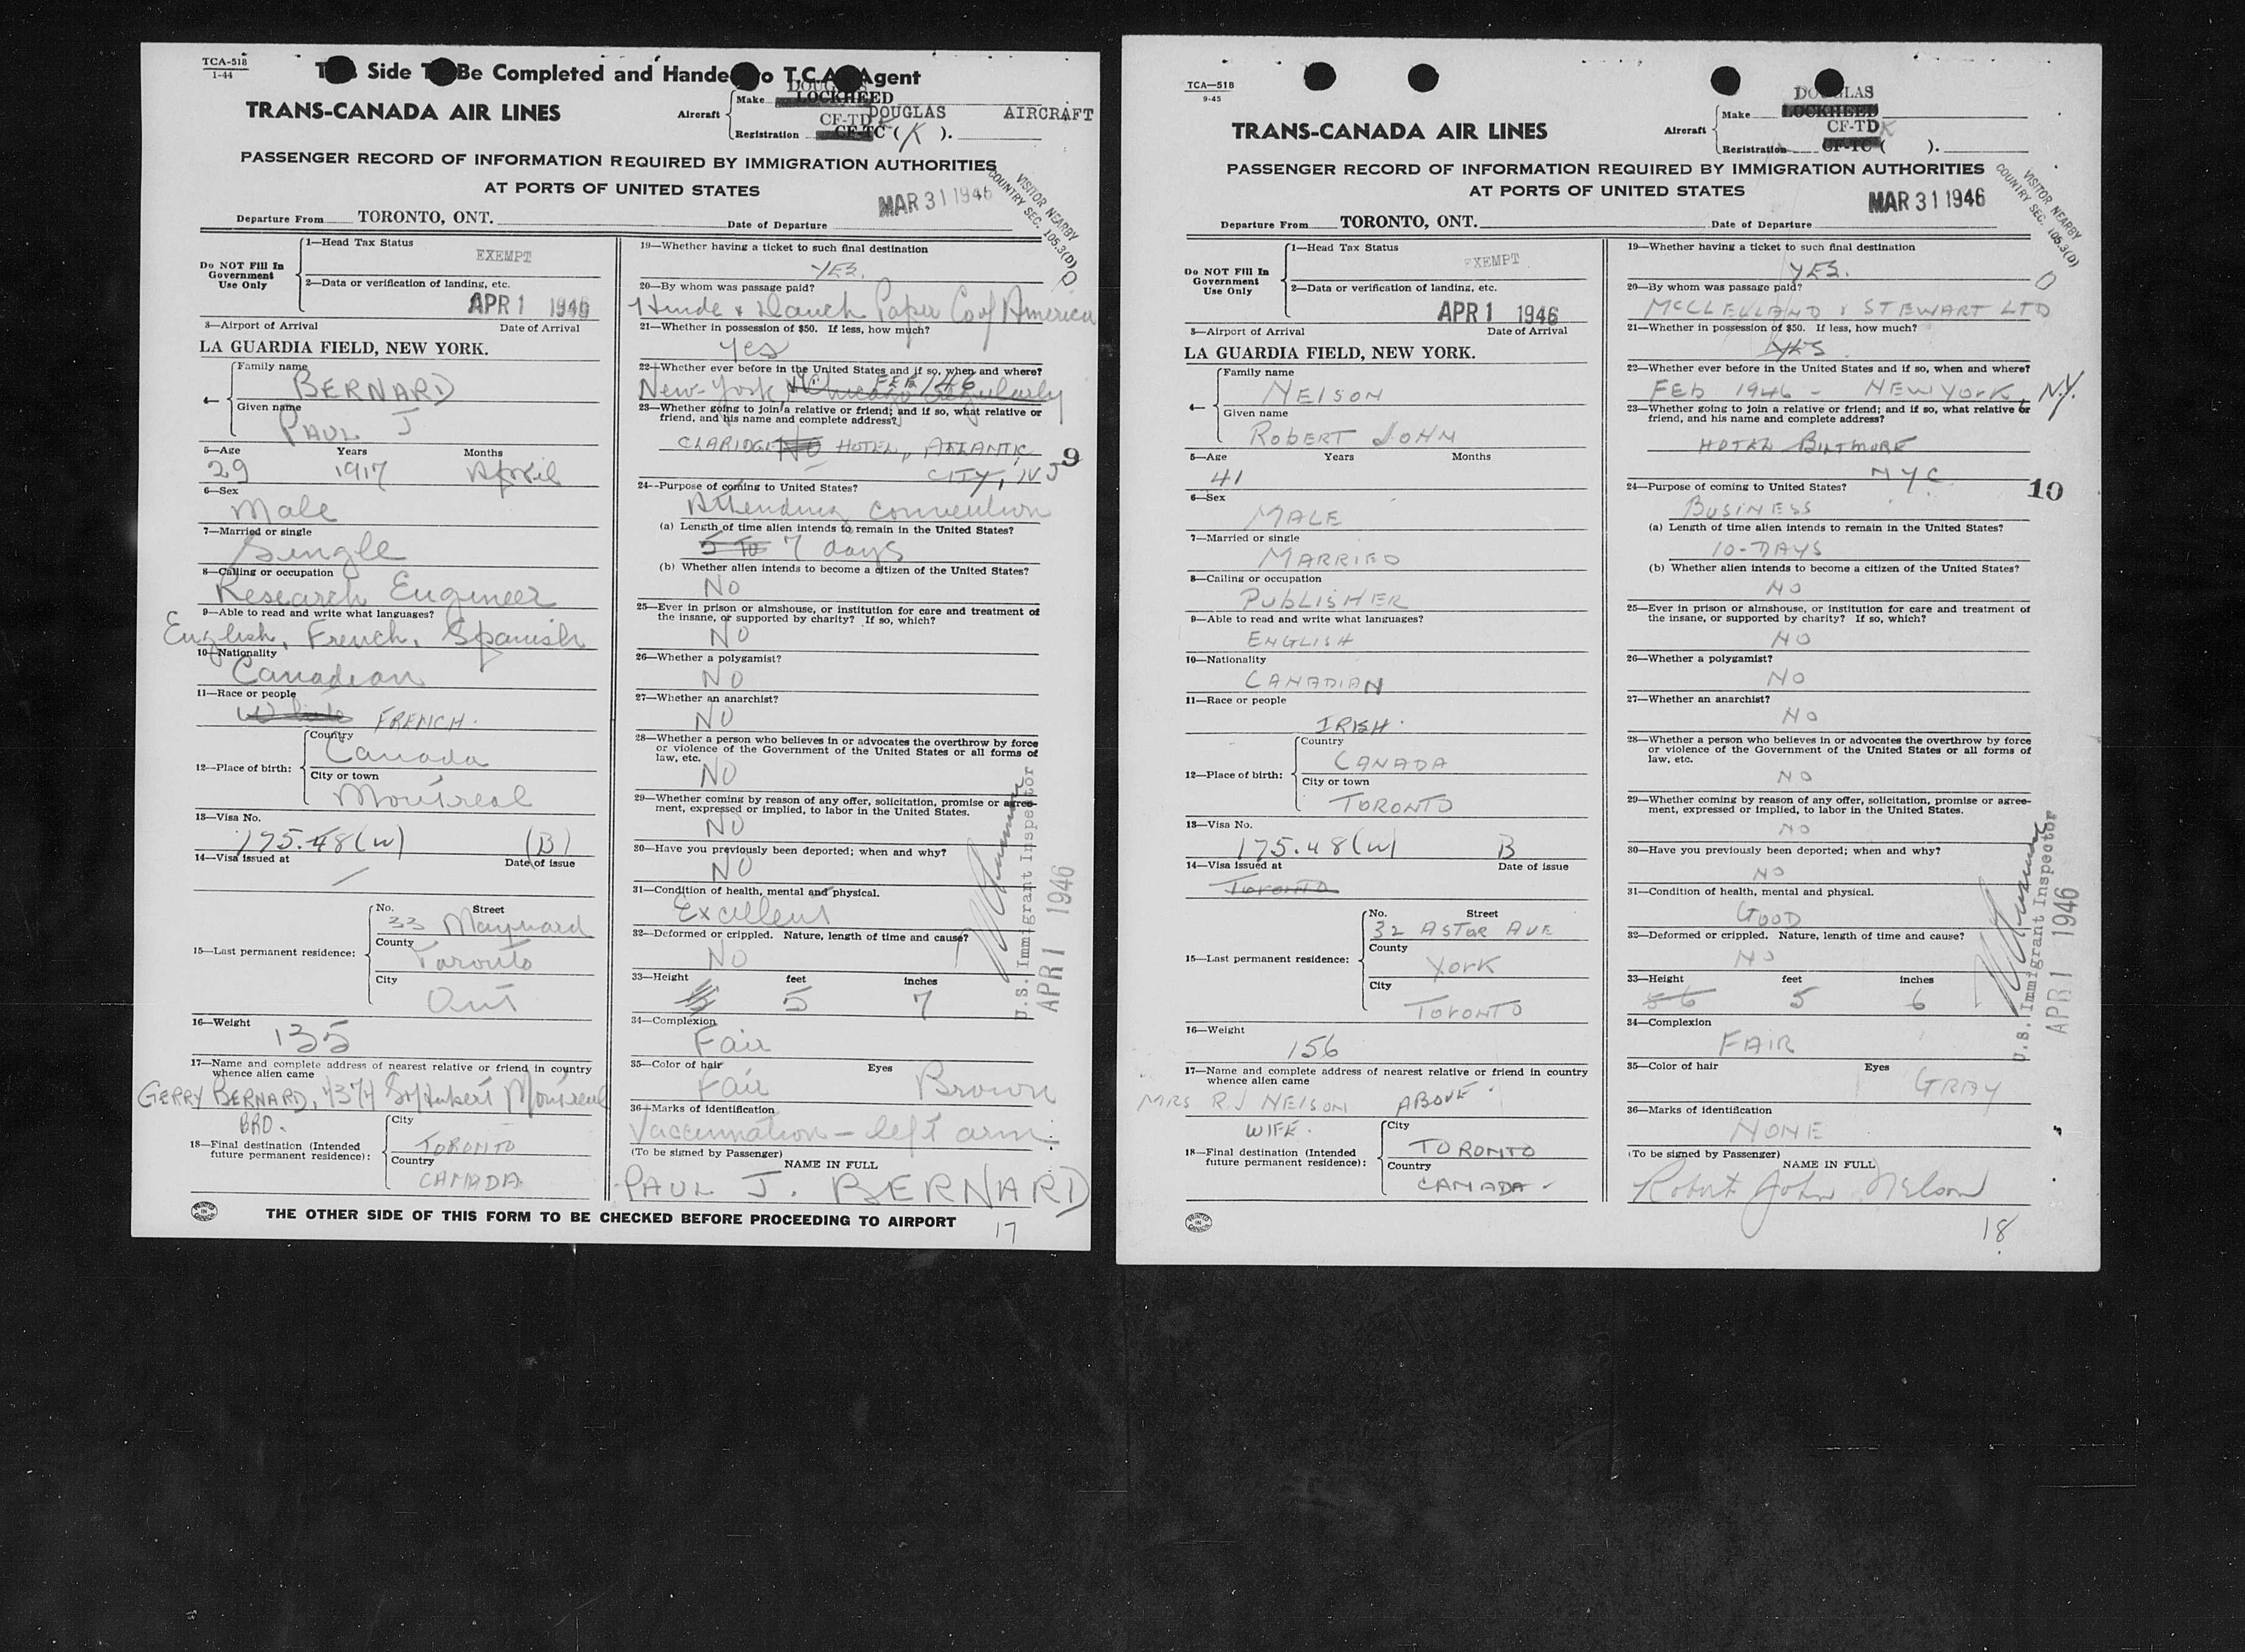 TCA-518
1-44
Side Be Completed and Hande o T.C.A. Agent
TRANS-CANADA AIR LINES
Aircraft
Make
DOUGLAS
LOCKHEED
DOUGLAS AIRCRAFT
CF-TD
Registration CF-TC ( K ).
PASSENGER RECORD OF INFORMATION REQUIRED BY IMMIGRATION AUTHORITIES
AT PORTS OF UNITED STATES
MAR 31 1946
VISITOR NEARBY
COUNTRY SEC. 105.3(D)
Departure From TORONTO, ONT. Date of Departure
Do NOT Fill In
Government
Use Only
1—Head Tax Status
EXEMPT
2—Data or verification of landing, etc.
APR 1 1946
3—Airport of Arrival Date of Arrival
LA GUARDIA FIELD, NEW YORK.
4—
Family name
BERNARD
Given name
PAUL J
5—Age Years Months
29 1917 April
6—Sex
Male
7—Married or single
Single
8—Calling or occupation
Research Engineer
9—Able to read and write what languages?
English, French, Spanish
10—Nationality
Canadian
11—Race or people
White FRENCH.
12—Place of birth:
Country
Canada
City or town
Montreal
13—Visa No.
175.48(W) (B)
14—Visa issued at Date of issue
15—Last permanent residence:
No. Street
33 Maynard
County
Toronto
City
Ont
16—Weight
135
17—Name and complete address of nearest relative or friend in country
whence alien came
GERRY BERNARD, 4374 St Hubert Montreal
BRO.
18—Final destination (Intended
future permanent residence):
City
TORONTO
Country
CANADA
PRINTED IN CANADA
19—Whether having a ticket to such final destination
YES.
20—By whom was passage paid?
Hinde & Dauch Paper Co of America
21—Whether in possession of $50. If less, how much?
yes
22—Whether ever before in the United States and if so, when and where?
FEB/46
New-York, Chicago regularly
23—Whether going to join a relative or friend; and if so, what relative or
friend, and his name and complete address?
CLARIDGE NO HOTEL, ATLANTIC
CITY, NJ
9
24—Purpose of coming to United States?
Attending convention
(a) Length of time alien intends to remain in the United States?
5 to 7 days
(b) Whether alien intends to become a citizen of the United States?
NO
25—Ever in prison or almshouse, or institution for care and treatment of
the insane, or supported by charity? If so, which?
NO
26—Whether a polygamist?
NO
27—Whether an anarchist?
NO
28—Whether a person who believes in or advocates the overthrow by force
or violence of the Government of the United States or all forms of
law, etc.
NO
29—Whether coming by reason of any offer, solicitation, promise or agree-
ment, expressed or implied, to labor in the United States.
NO
30—Have you previously been deported; when and why?
NO
31—Condition of health, mental and physical.
Excellent
32—Deformed or crippled. Nature, length of time and cause?
NO
33—Height feet inches
5 7
34—Complexion
Fair
35—Color of hair Eyes
Fair Brown
36—Marks of identification
Vaccination - left arm
(To be signed by Passenger)
NAME IN FULL
PAUL J. BERNARD
U.S. Immigrant Inspector
APR 1 1946
THE OTHER SIDE OF THIS FORM TO BE CHECKED BEFORE PROCEEDING TO AIRPORT
17
TCA—518
9-45
TRANS-CANADA AIR LINES
Aircraft
DOUGLAS
Make LOCKHEED
CF-TDK
Registration CF-TC ( ).
PASSENGER RECORD OF INFORMATION REQUIRED BY IMMIGRATION AUTHORITIES
AT PORTS OF UNITED STATES
MAR 31 1946
VISITOR NEARBY
COUNTRY SEC. 105.3(D)
Departure From TORONTO, ONT. Date of Departure
Do NOT Fill In
Government
Use Only
1—Head Tax Status
EXEMPT
2—Data or verification of landing, etc.
APR 1 1946
3—Airport of Arrival Date of Arrival
LA GUARDIA FIELD, NEW YORK.
4—
Family name
NELSON
Given name
ROBERT JOHN
5—Age Years Months
41
6—Sex
MALE
7—Married or single
MARRIED
8—Calling or occupation
PUBLISHER
9—Able to read and write what languages?
ENGLISH
10—Nationality
CANADIAN
11—Race or people
IRISH.
12—Place of birth:
Country
CANADA
City or town
TORONTO
13—Visa No.
175.48(W) B
14—Visa issued at Date of issue
Toronto
15—Last permanent residence:
No. Street
32 ASTOR AVE
County
YORK
City
TORONTO
16—Weight
156
17—Name and complete address of nearest relative or friend in country
whence alien came
MRS R.J NELSON ABOVE.
WIFE.
18—Final destination (Intended
future permanent residence):
City
TORONTO
Country
CANADA
PRINTED IN CANADA
19—Whether having a ticket to such final destination
YES.
20—By whom was passage paid?
MCCLELLAND & STEWART LTD
21—Whether in possession of $50. If less, how much?
YES
22—Whether ever before in the United States and if so, when and where?
FEB 1946 - NEW YORK, N.Y.
23—Whether going to join a relative or friend; and if so, what relative or
friend, and his name and complete address?
HOTEL BILTMORE
NYC
10
24—Purpose of coming to United States?
BUSINESS
(a) Length of time alien intends to remain in the United States?
10-DAYS
(b) Whether alien intends to become a citizen of the United States?
NO
25—Ever in prison or almshouse, or institution for care and treatment of
the insane, or supported by charity? If so, which?
NO
26—Whether a polygamist?
NO
27—Whether an anarchist?
NO
28—Whether a person who believes in or advocates the overthrow by force
or violence of the Government of the United States or all forms of
law, etc.
NO
29—Whether coming by reason of any offer, solicitation, promise or agree-
ment, expressed or implied, to labor in the United States.
NO
30—Have you previously been deported; when and why?
NO
31—Condition of health, mental and physical.
GOOD
32—Deformed or crippled. Nature, length of time and cause?
NO
33—Height feet inches
5 6 5 6
34—Complexion
FAIR
35—Color of hair Eyes
GRAY
36—Marks of identification
NONE
(To be signed by Passenger)
NAME IN FULL
Robert John Nelson
U.S. Immigrant Inspector
APR 1 1946
18